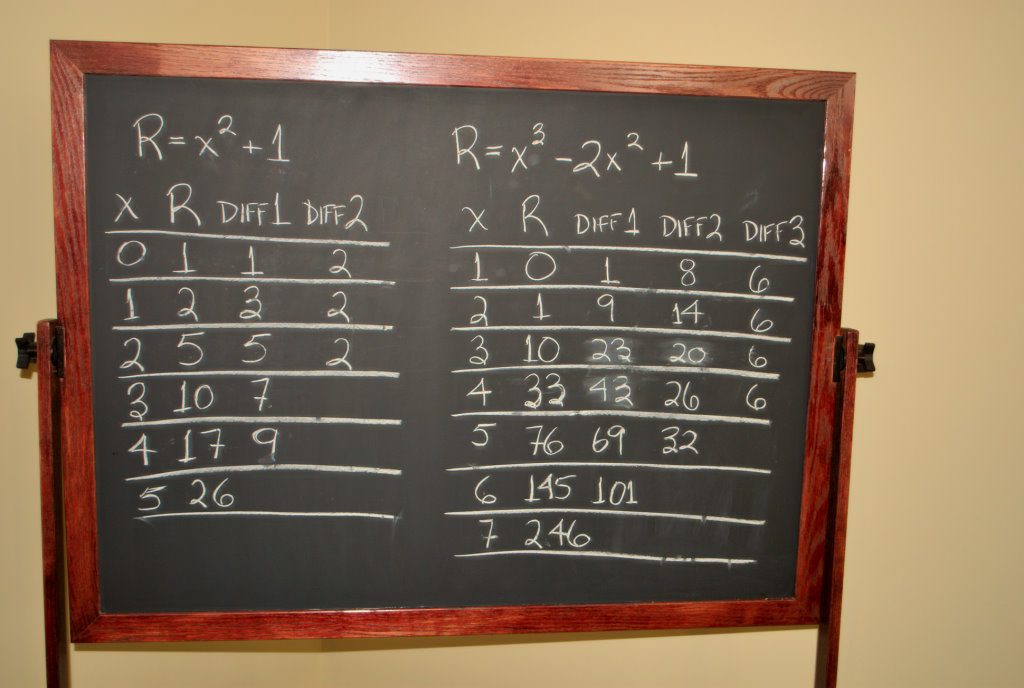 R = x² + 1
X R DIFF1 DIFF2
0 1 1 2
1 2 3 2
2 5 5 2
3 10 7
4 17 9
5 26
R = x³ - 2x² + 1
X R DIFF1 DIFF2 DIFF3
1 0 1 8 6
2 1 9 14 6
3 10 23 20 6
4 33 43 26 6
5 76 69 32
6 145 101
7 246